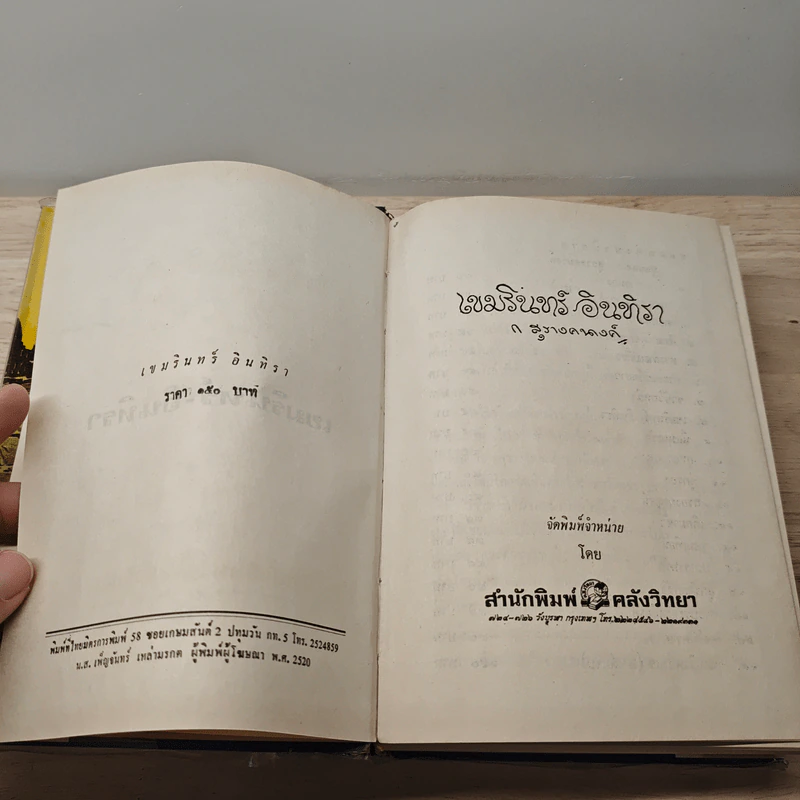 เขมรินทร์ อินทิรา
ราคา ๑๕๐ บาท
พิมพ์ที่ไทยมิตรการพิมพ์ 58 ซอยเกษมสันต์ 2 ปทุมวัน กท. 5 โทร. 2524859
น.ส. เพ็ญจันทร์ เหล่ามรกต ผู้พิมพ์ผู้โฆษณา พ.ศ. 2520
เขมรินทร์ อินทิรา
ก สุรางคนางค์
จัดพิมพ์จำหน่าย
โดย
สำนักพิมพ์ คลังวิทยา
๗๒๔-๗๒๖ วังบูรพา กรุงเทพฯ โทร.